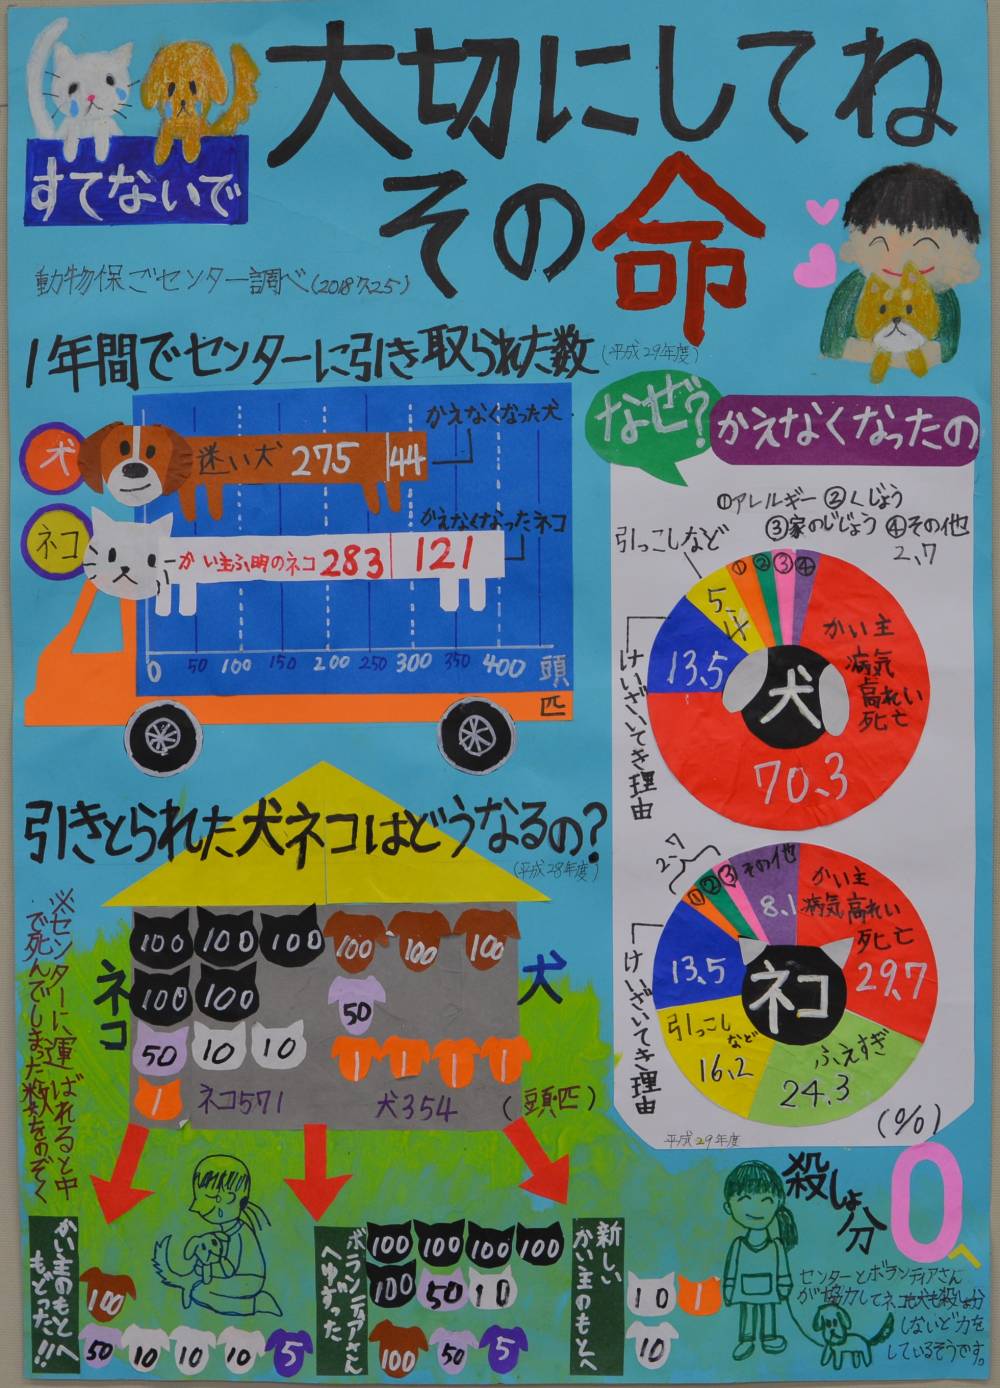 大切にしてね
その命
すてないで
動物保ごセンター調べ(2018.7.25)
1年間でセンターに引き取られた数(平成29年度)
犬
迷い犬 275 44
かえなくなった犬
ネコ
かい主ふ明のネコ 283 121
かえなくなったネコ
0 50 100 150 200 250 300 350 400 頭
匹
なぜ?
かえなくなったの
①アレルギー ②くじょう
③家のじじょう ④その他
2、7
引っこしなど
5、4
① ② ③ ④
かい主
病気
高れい
死亡
13、5
けいざいてき理由
犬
70、3
2、7
① ② ③ その他
8、1
かい主
病気 高れい
死亡
29、7
13、5
けいざいてき理由
ネコ
引っこし
など
16、2
ふえすぎ
24、3
(%)
平成29年度
引きとられた犬ネコはどうなるの?
(平成28年度)
※センターに運ばれると中
で死んでしまった数をのぞく
ネコ
100 100 100
100 100
50 10 10
1
ネコ571
犬
100 100 100
50
1 1 1 1
犬354
(頭・匹)
かい主のもとへ
もどった!!
100
50 10 10 10 5
ボランティアさん
へゆずった
100 100 100 100
100 50 10
100 50 5
新しい
かい主のもとへ
10 1
10
殺しょ分
0へ
センターとボランティアさん
が協力してネコも犬も殺しょ分
しないど力を
しているそうです。